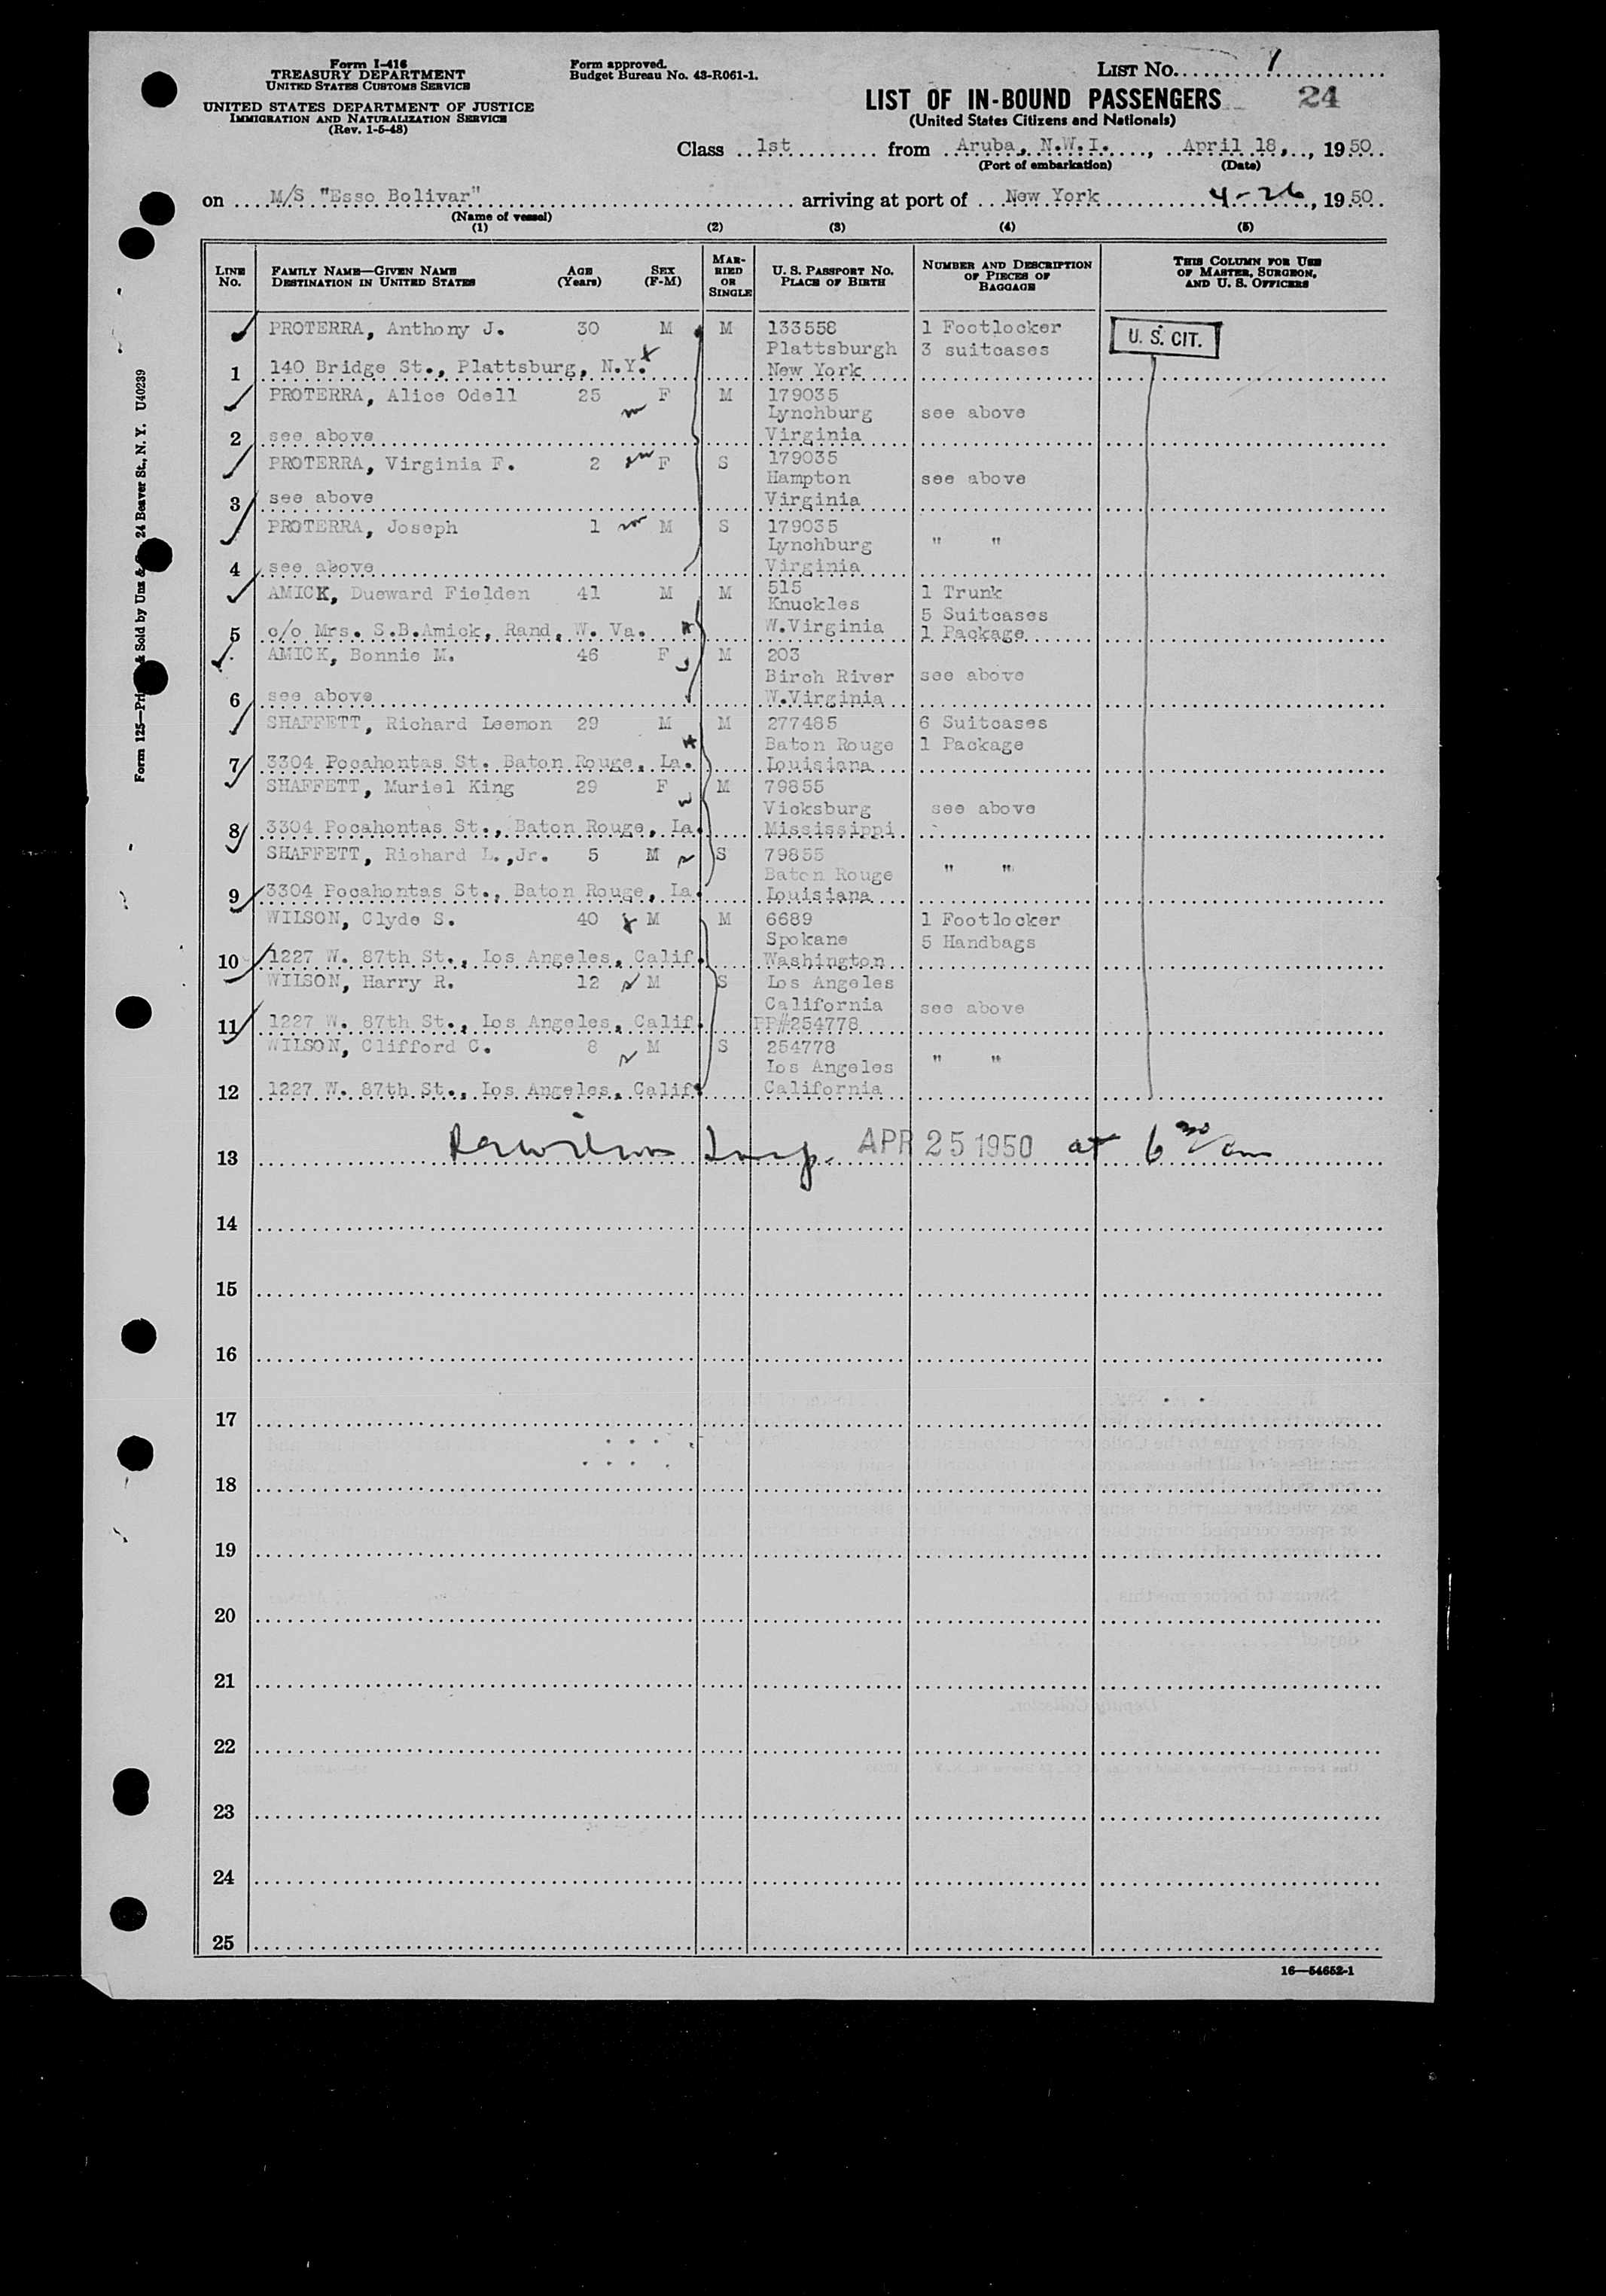 Form I-416
TREASURY DEPARTMENT
UNITED STATES CUSTOMS SERVICE
UNITED STATES DEPARTMENT OF JUSTICE
IMMIGRATION AND NATURALIZATION SERVICE
(Rev. 1-5-48)
Form approved.
Budget Bureau No. 43-R061-1.
LIST No. 1
LIST OF IN-BOUND PASSENGERS 24
(United States Citizens and Nationals)
Class 1st from Aruba, N.W.I., April 18, 1950
(Port of embarkation) (Date)
on M/S "Esso Bolivar" arriving at port of New York 4-26, 1950
(Name of vessel)
(1) (2) (3) (4) (5)
LINE No.
FAMILY NAME—GIVEN NAME
DESTINATION IN UNITED STATES
AGE (Years)
SEX (F-M)
MARRIED OR SINGLE
U. S. PASSPORT No.
PLACE OF BIRTH
NUMBER AND DESCRIPTION OF PIECES OF BAGGAGE
THIS COLUMN FOR USE OF MASTER, SURGEON, AND U. S. OFFICERS
PROTERRA, Anthony J. 30 M M 133558 1 Footlocker U. S. CIT.
Plattsburgh 3 suitcases
1 140 Bridge St., Plattsburg, N.Y. New York
PROTERRA, Alice Odell 25 F M 179035
Lynchburg see above
2 see above Virginia
PROTERRA, Virginia F. 2 F S 179035
Hampton see above
3 see above Virginia
PROTERRA, Joseph 1 M S 179035
Lynchburg " "
4 see above Virginia
AMICK, Dueward Fielden 41 M M 515 1 Trunk
Knuckles 5 Suitcases
5 c/o Mrs. S.B.Amick, Rand, W. Va. W.Virginia 1 Package
AMICK, Bonnie M. 46 F M 203
Birch River see above
6 see above W.Virginia
SHAFFETT, Richard Leemon 29 M M 277485 6 Suitcases
Baton Rouge 1 Package
7 3304 Pocahontas St. Baton Rouge, La. Louisiana
SHAFFETT, Muriel King 29 F M 79855
Vicksburg see above
8 3304 Pocahontas St., Baton Rouge, La. Mississippi
SHAFFETT, Richard L.,Jr. 5 M S 79855
Baton Rouge " "
9 3304 Pocahontas St., Baton Rouge, La. Louisiana
WILSON, Clyde S. 40 M M 6689 1 Footlocker
Spokane 5 Handbags
10 1227 W. 87th St., Los Angeles, Calif. Washington
WILSON, Harry R. 12 M S Los Angeles
California see above
11 1227 W. 87th St., Los Angeles, Calif. PP#254778
WILSON, Clifford C. 8 M S 254778
Los Angeles " "
12 1227 W. 87th St., Los Angeles, Calif. California
13 Insp. APR 25 1950 at 6 30 am
14
15
16
17
18
19
20
21
22
23
24
25
16—54652-1
24 Beaver St., N. Y. U40239